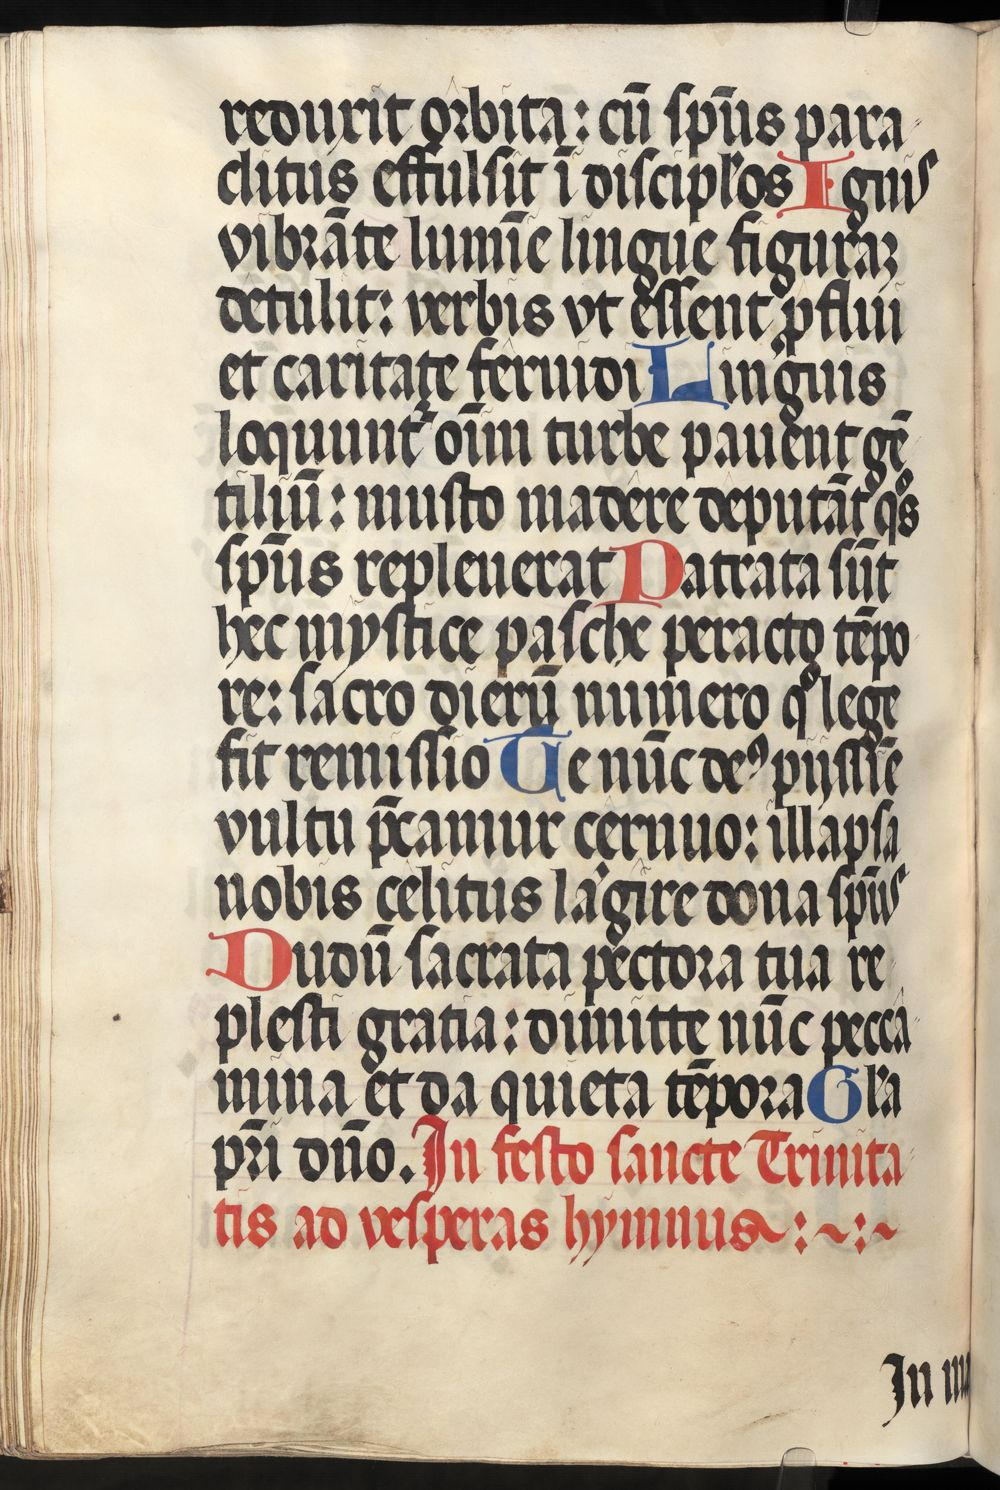 reduxit orbita: cū spūs para
clitus effulsit ī discipl'os Ignis
vibrāte lumīe lingue figuraꝫ
detulit: verbis vt essent ꝓflui
et caritate feruidi Linguis
loquunt᷑ oīm turbe pauent gē
tiliū: musto madere deputāt qͦs
spūs repleuerat Patrata sūt
hec mystice pasche peracto tēpo
re: sacro dierū numero qͦ lege
fit remissio Te nūc deꝰ pijssīe
vultu p̄camur cernuo: illapsa
nobis celitus largire dona spūs
Dudū sacrata pectora tua re
plesti gratia: dimitte nūc pecca
mina et da quieta tēpora Gl'a
pr̄i dn̄o. In festo sancte Trinita
tis ad vesperas hymnus~:~:~
In ma